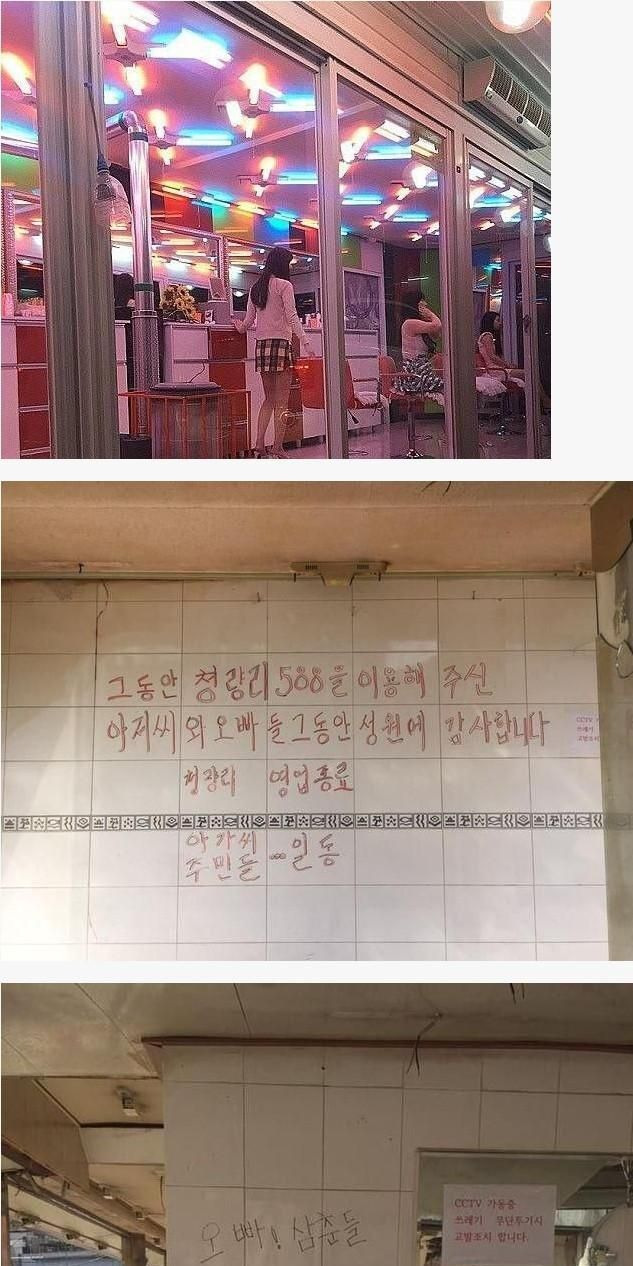 그동안 청량리 588을 이용해 주신
아저씨와 오빠들 그동안 성원에 감사합니다
청량리 영업종료
아가씨
주민들 ... 일동
CCTV 가동중
쓰레기 무단투기시
고발조치 합니다.
오빠! 삼춘들